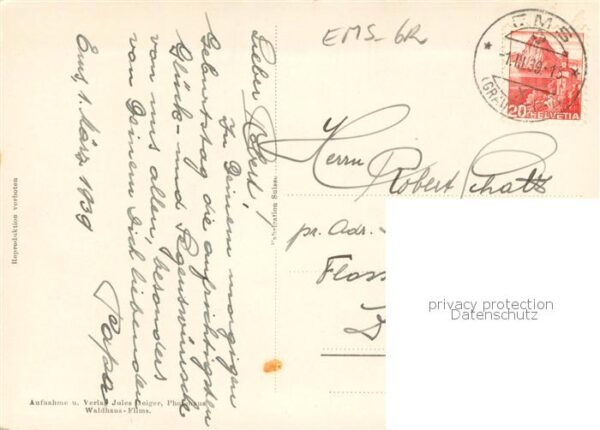 Ems, 1. März 1939
Lieber Robert!
Zu Deinem morgigen
Geburtstag die aufrichtigsten
Glück- und Segenswünsche
von uns allen, besonders
von Deinem Dich liebenden
Papa
EMS - GR
EMS
1.III.39
HELVETIA
20
Herrn
Robert Schatz
pr. Adr.
Reproduktion verboten
Fabrication Suisse
Aufnahme u. Verlag Jules Geiger, Photohaus
Waldhaus-Flims.
privacy protection
Datenschutz